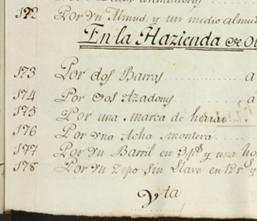 172 Por Vn Almud, y un medio almud
En la Hazienda de
173 Por dos Barras a
174 Por dos Azadones a
175 Por una marca de herrar
176 Por Vna Acha Montera
177 Por Vn Barril en 3 p.s y una
178 Por Vn Zepo Sin Llave en 12 r.s y
Vta